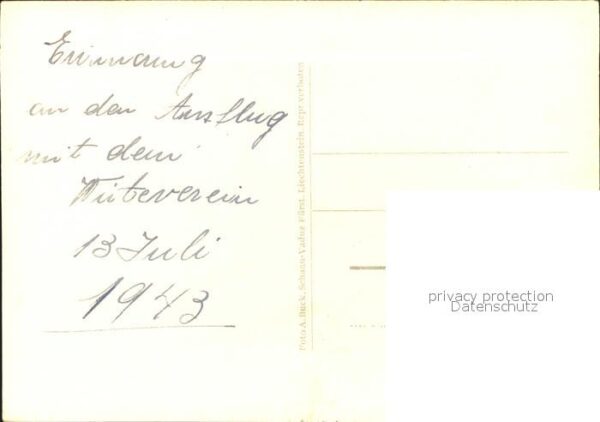 Erinnerung
an den Ausflug
mit dem
Wirteverein
13 Juli
1943
Foto A. Buck, Schaan-Vaduz Fürst. Liechtenstein. Repr. verboten
privacy protection
Datenschutz